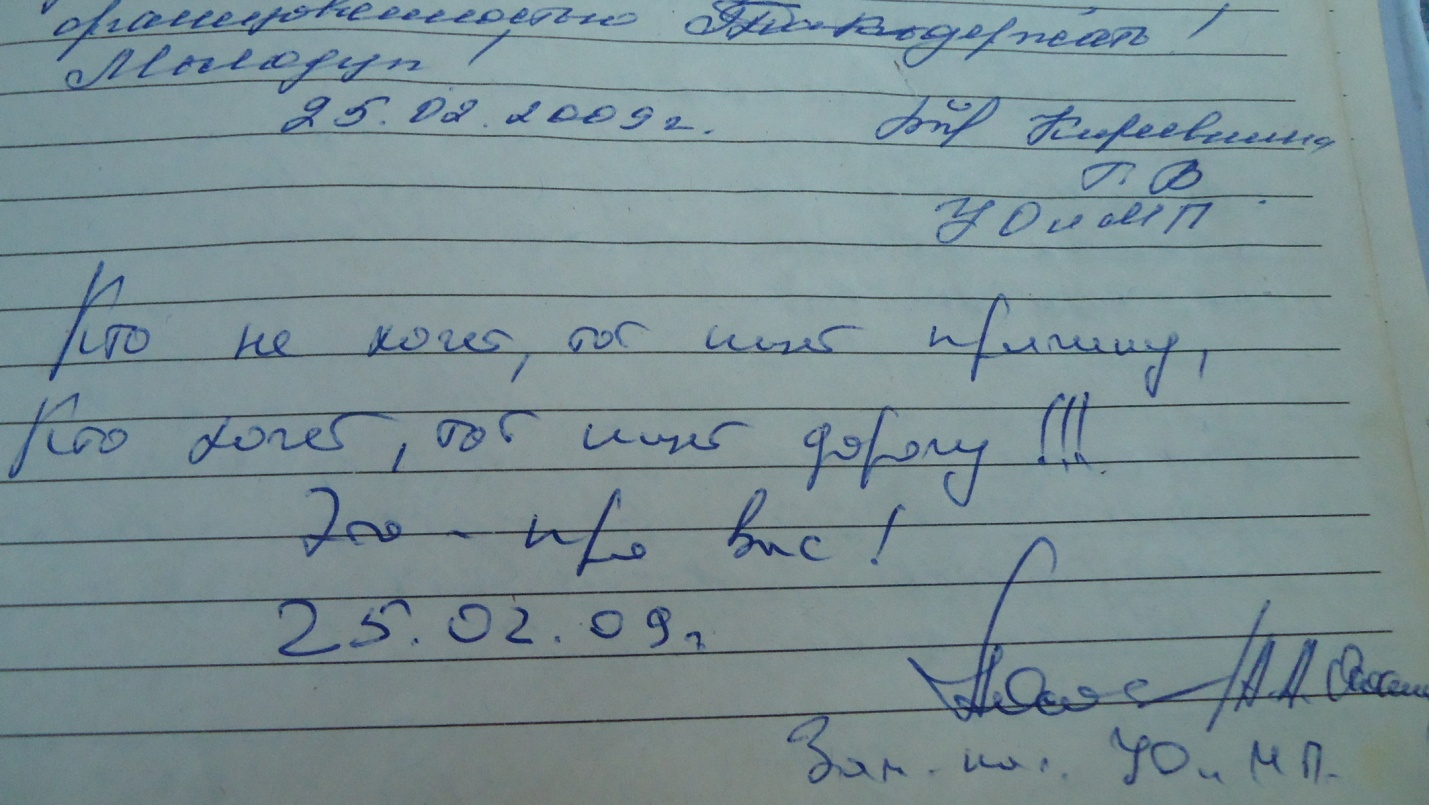 организованностью Так держать!
Молодцы!
25.02.2009г.
Г. В
УО и МП
Кто не хочет, тот ищет причину,
Кто хочет, тот ищет дорогу !!!
Это - про вас!
25.02.09г
А.А.
Зам. нач. УО и МП.